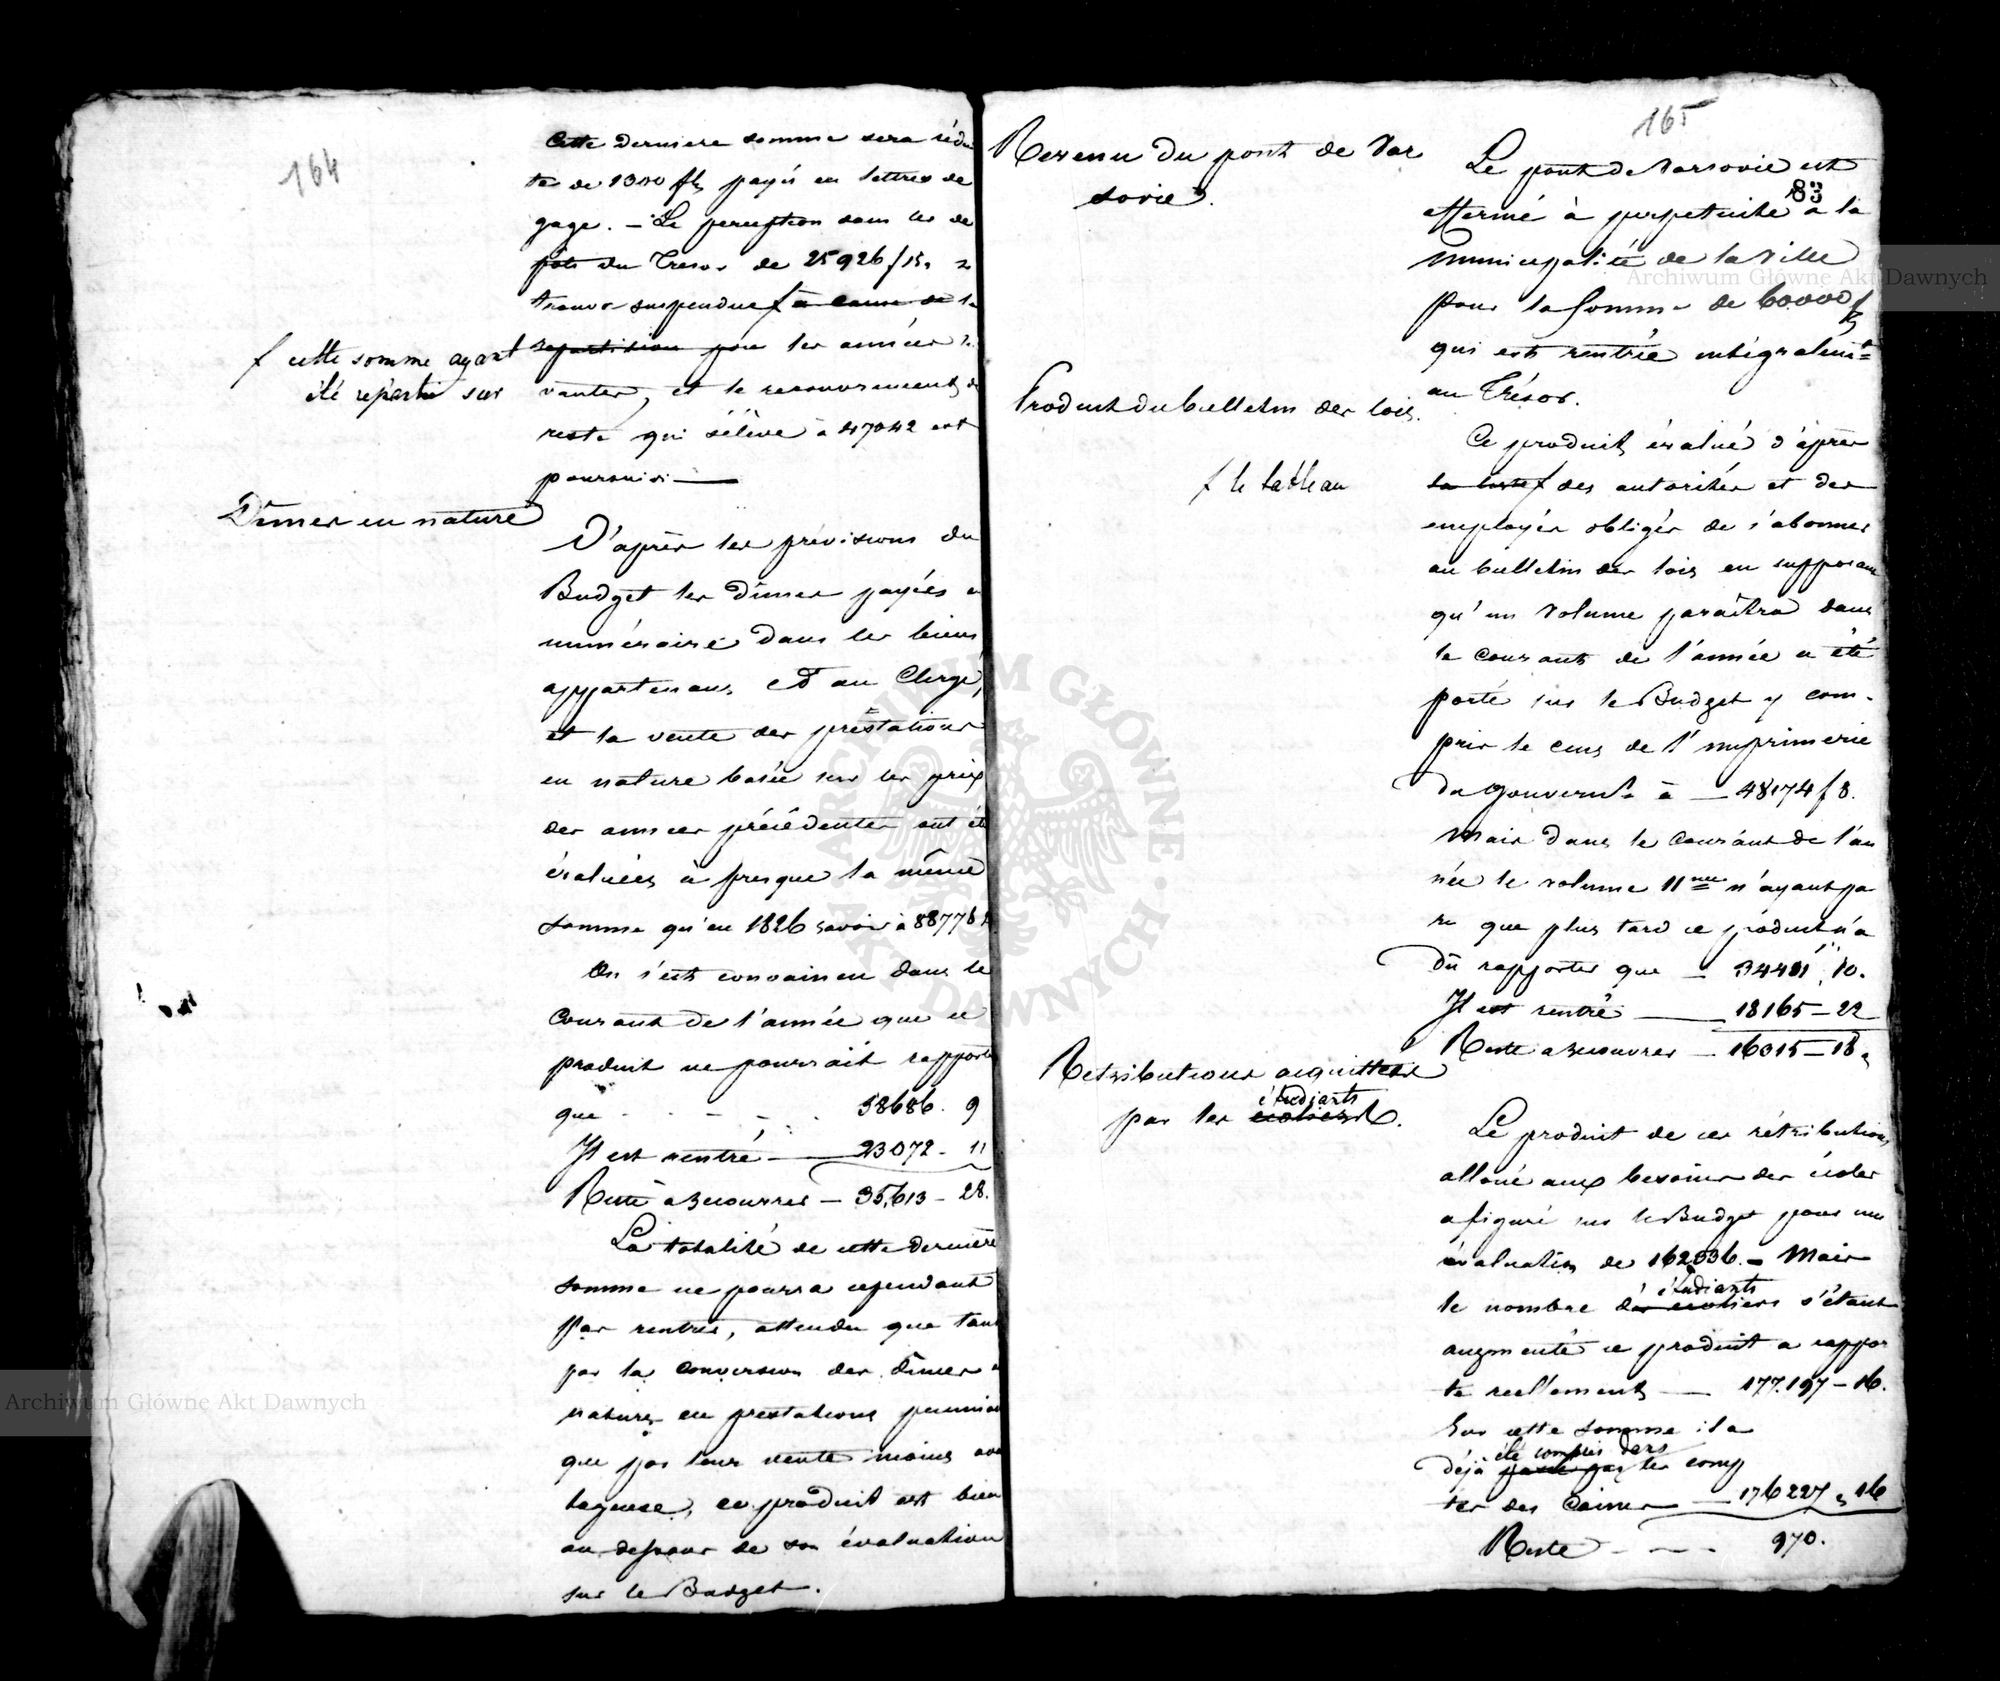 164
Cette derniere somme sera rédui
te de 1300 fls payés en lettres de
gage. – La perception dans les dé
pôts du Tresor de 25926 f 15, se
trouve suspendue f à cause de la
repartition pour les années
f cette somme ayant
été répartie sur
vantes, et le recouvrement du
reste qui s'élève à 47042 est
poursuivi —
Dimes en nature
D'après les prévisions du
Budget les Dimes payées en
numéraire dans les biens
appartenans au Clergé,
et la vente des prestations
en nature basée sur les prix
des annees précédentes ont été
évaluées à presque la même
somme qu'en 1826 savoir à 88776
On s'est convaincu dans le
Courant de l'année que ce
produit ne pourrait rapporter
que - - - - 58686. 9
Il est rentré — 23072 - 11
Reste à recouvrer — 35,613 - 28.
La totalité de cette dernière
somme ne pourra cependant
pas rentrer, attendu que tant
par la conversion des dimes en
nature en prestations pecuniai
que par leur vente moins avan
tageuse, ce produit est bien
au dessous de son évaluation
sur le Budget.
165
83
Revenu du pont de Var
sovie.
Le pont de Varsovie est
affermé à perpetuité à la
Municipalité de la Ville
pour la somme de 60000 f
qui est rentrée intégralemt
au Trésor.
Produit du bulletin des lois.
Ce produit évalué d'après
f le tableau
la liste f des autorités et des
employés obligés de s'abonner
au bulletin des lois en supposant
qu'un Volume paraîtra dans
le Courant de l'année a été
porté sur le Budget y com-
pris le cens de l'imprimerie
du Gouvernt à — 48174 f 8.
Mais dans le Courant de l'an
née le volume 11me n'ayant pa
ru que plus tard ce produit n'a
dû rapporter que — 34481, 10.
Il est rentré — 18165 – 22
Reste a recouvrer — 16315 – 18,
Retributions acquittées
par les écoliers étudiants.
Le produit de ces rétributions
alloué aux besoins des écoles
a figuré sur le Budget pour une
évaluation de 162336. – Mais
étudiants
le nombre des écoliers s'étant
augmenté ce produit a rappor
té reellement — 177.197 – 16.
Sur cette somme il a
été compris dans
déjà passé par les comp
tes des Caisses — 176227, 16
Reste - - - 970.
Archiwum Główne Akt Dawnych
Archiwum Główne Akt Dawnych
ARCHIWUM GŁÓWNE · AKT DAWNYCH ·